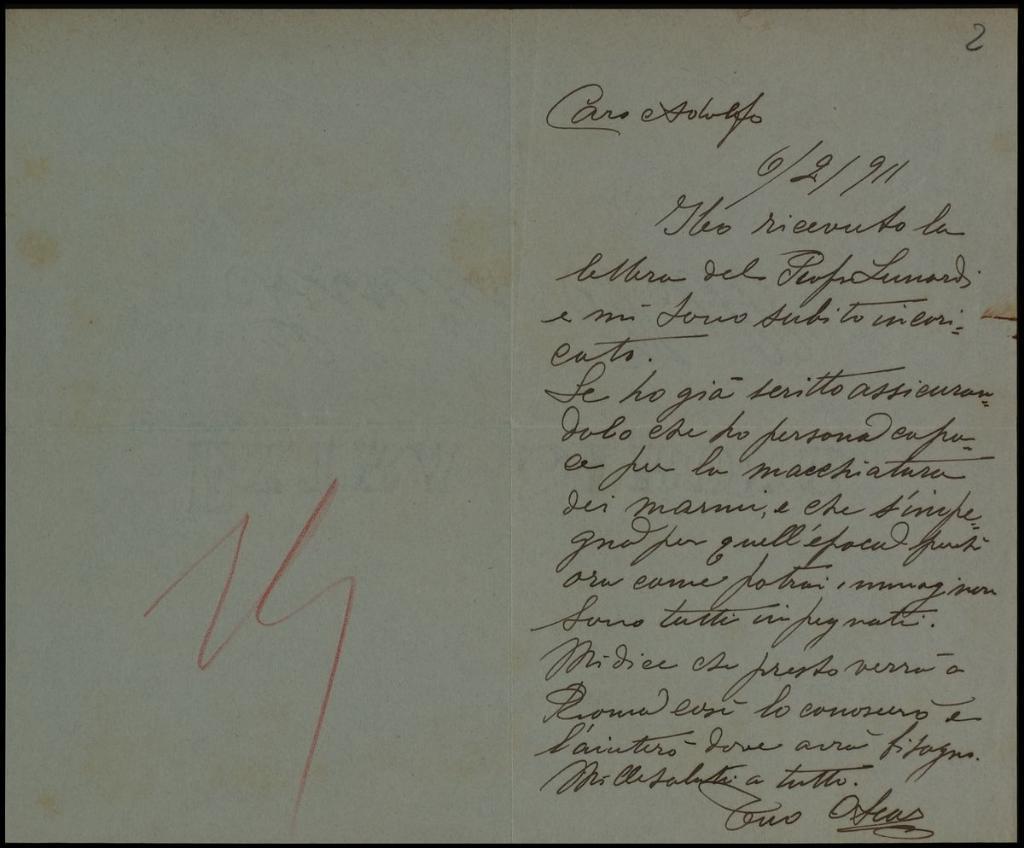 2
Caro Adolfo
6/2/911
Ho ricevuto la
lettera del Prof. Lunardi
e mi sono subito incari=
cato.
Le ho già scritto assicuran=
dolo che ho persona capa=
ce per la macchiatura
dei marmi, e che s'impe=
gna per quell'epoca
ora come potrai immaginare
sono tutti impegnati.
Mi dice che presto verrà a
Roma così lo conoscerò e
l'aiuterò dove avrà bisogno.
Mille saluti a tutti.
Tuo